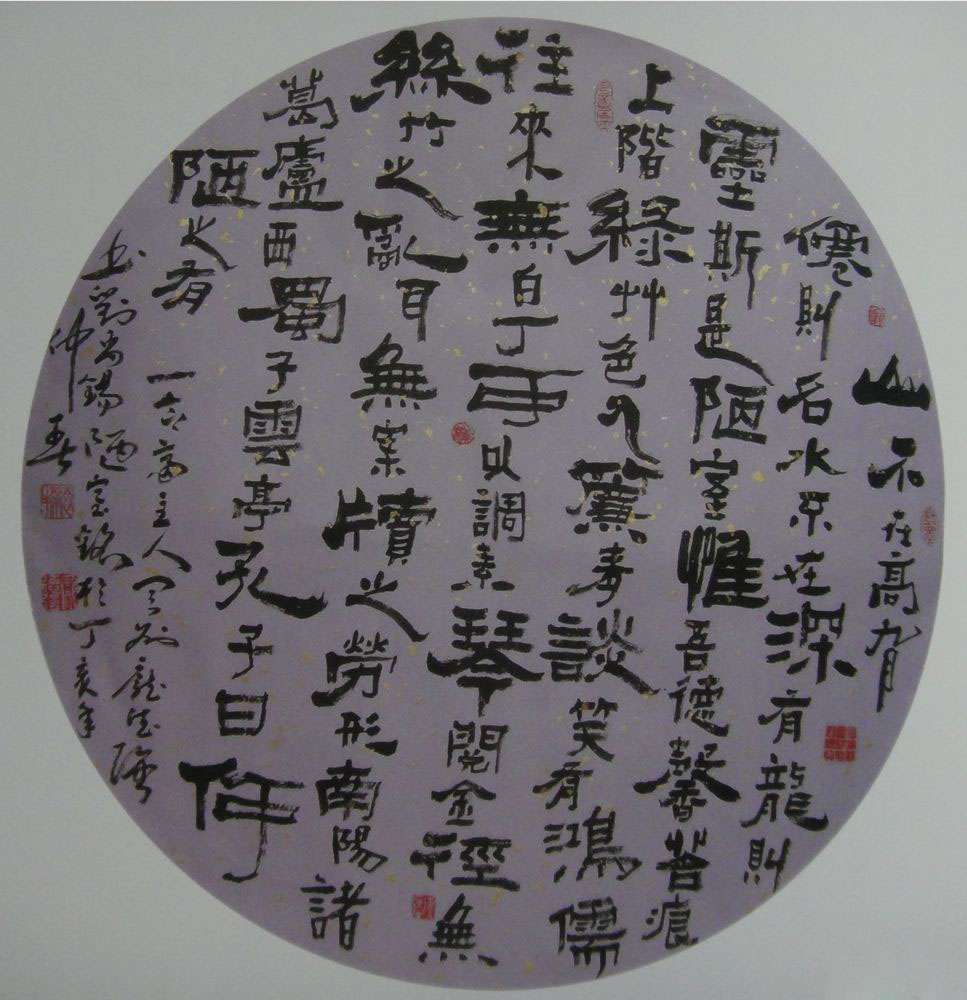 山不在高有
僊則名水不在深有龍則
靈斯是陋室惟吾德馨苔痕
上階綠艸色入簾青談笑有鴻儒
往來無白丁可以調素琴閱金徑無
絲竹之亂耳無案牘之勞形南陽諸
葛廬西蜀子雲亭孔子曰何
陋之有
齋主人
書劉禹錫陋室銘於丁亥年
仲春